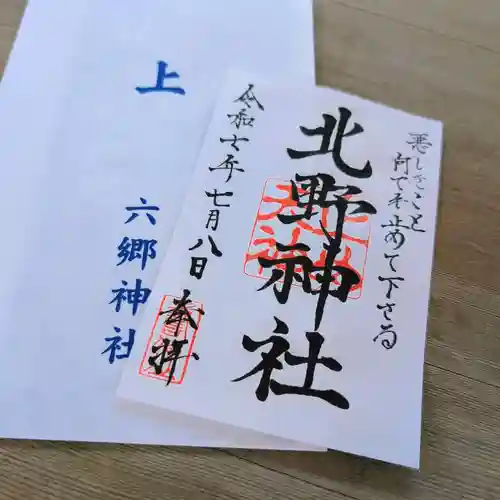 上
六郷神社
悪しきこと
何で不止めて下さる
北野神社
令和七年七月八日
奉拝